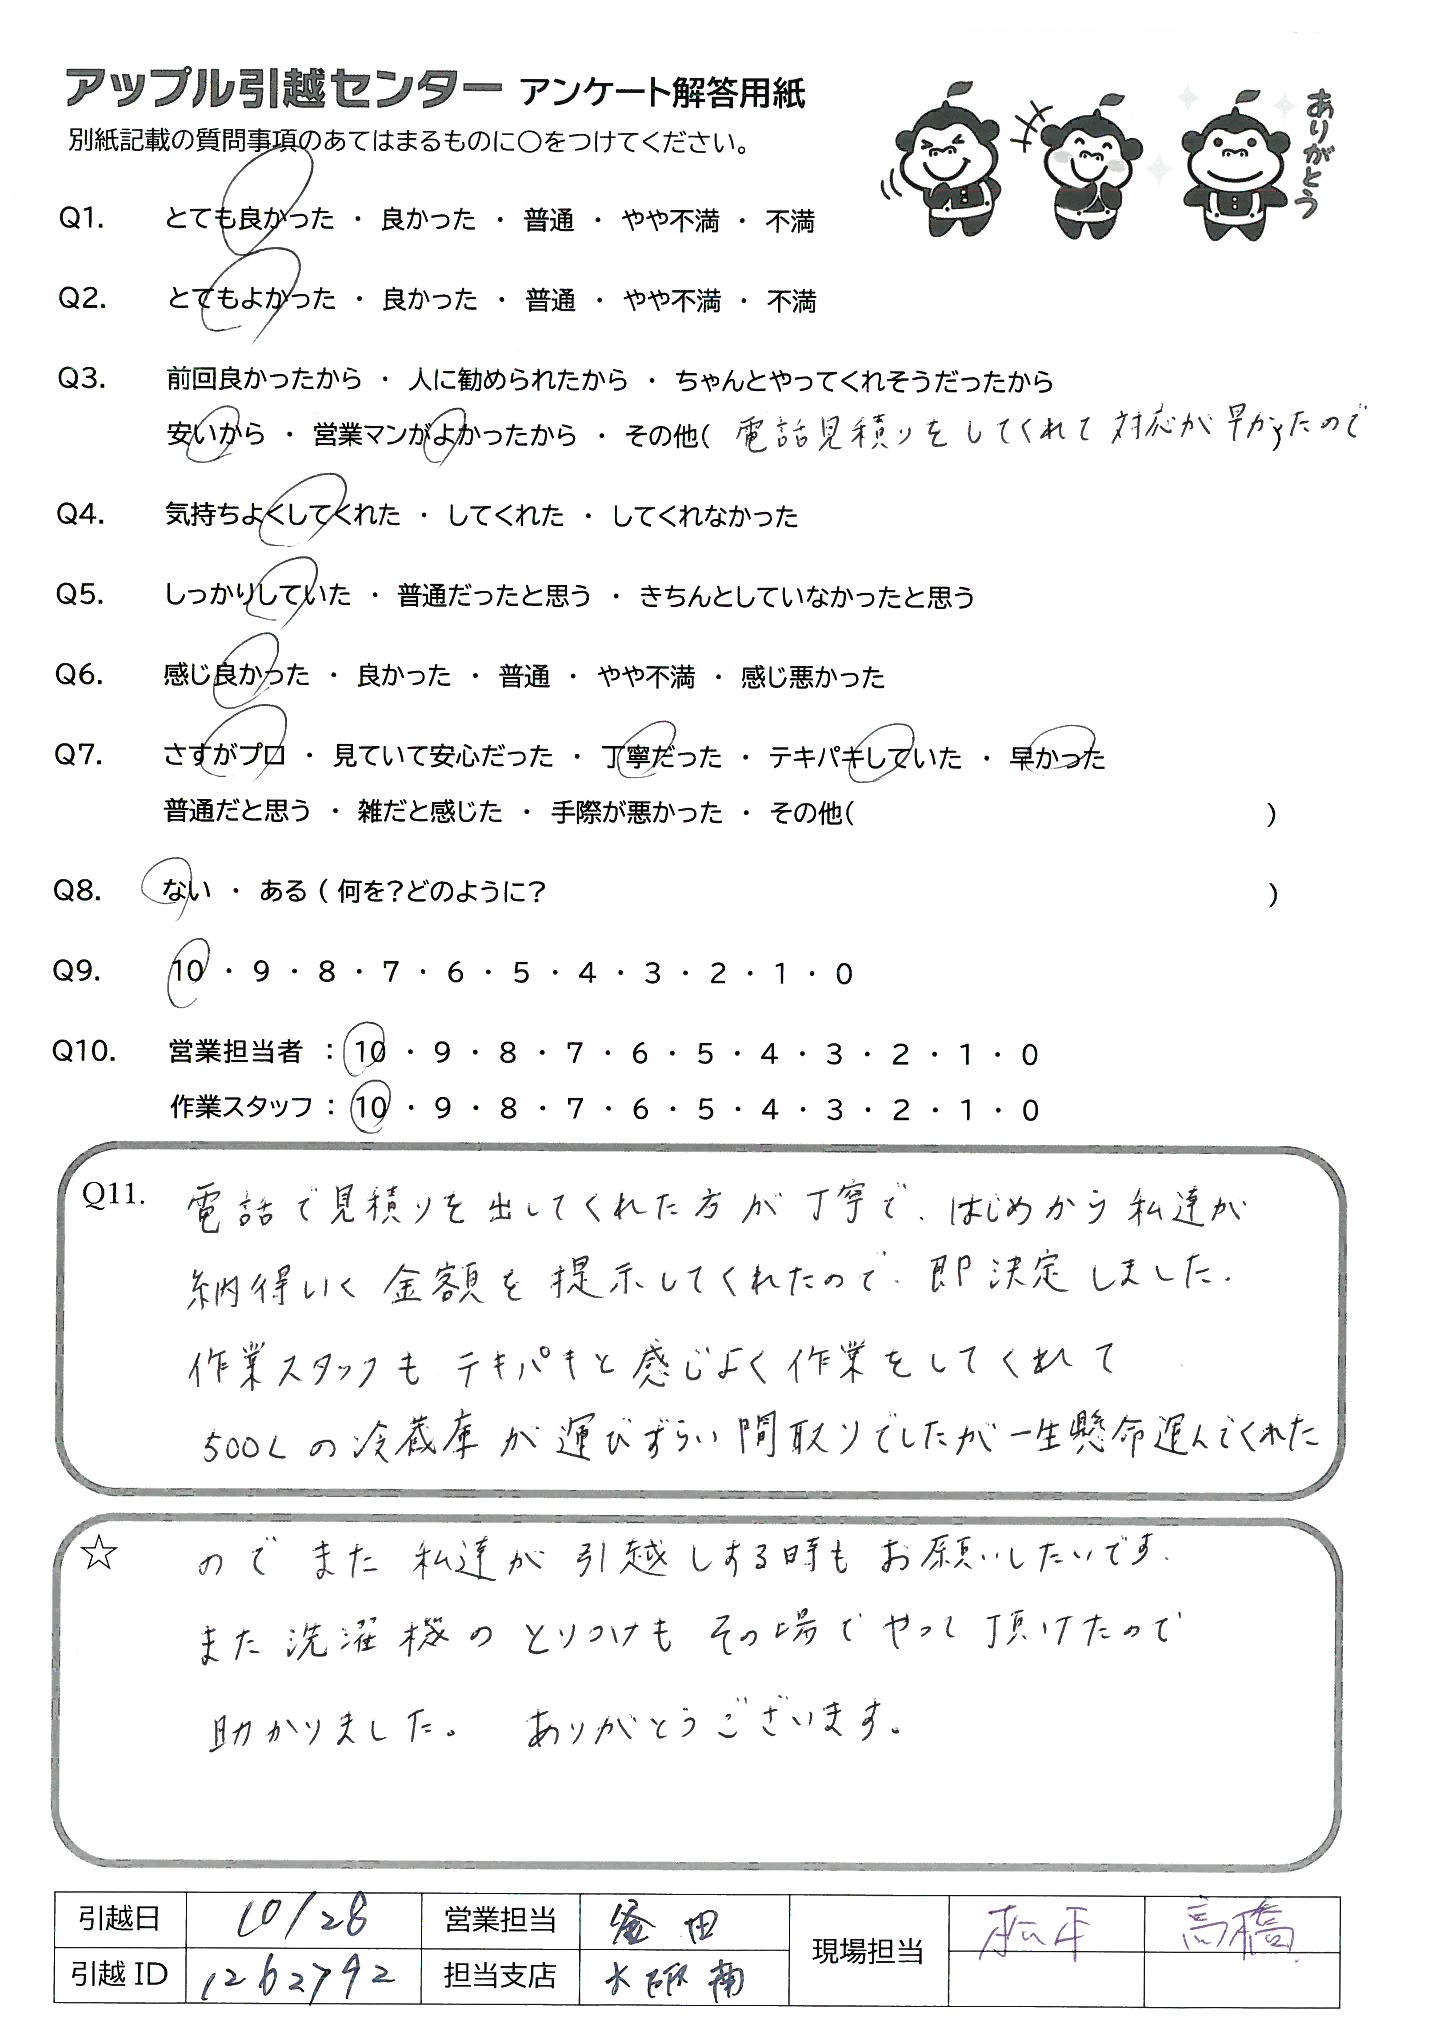 アップル引越センター アンケート解答用紙
ありがとう
別紙記載の質問事項のあてはまるものに○をつけてください。
Q1. とても良かった ・ 良かった ・ 普通 ・ やや不満 ・ 不満
Q2. とてもよかった ・ 良かった ・ 普通 ・ やや不満 ・ 不満
Q3. 前回良かったから ・ 人に勧められたから ・ ちゃんとやってくれそうだったから
安いから ・ 営業マンがよかったから ・ その他( 電話見積りをしてくれて対応が早かったので
Q4. 気持ちよくしてくれた ・ してくれた ・ してくれなかった
Q5. しっかりしていた ・ 普通だったと思う ・ きちんとしていなかったと思う
Q6. 感じ良かった ・ 良かった ・ 普通 ・ やや不満 ・ 感じ悪かった
Q7. さすがプロ ・ 見ていて安心だった ・ 丁寧だった ・ テキパキしていた ・ 早かった
普通だと思う ・ 雑だと感じた ・ 手際が悪かった ・ その他( )
Q8. ない ・ ある ( 何を?どのように? )
Q9. 10 ・ 9 ・ 8 ・ 7 ・ 6 ・ 5 ・ 4 ・ 3 ・ 2 ・ 1 ・ 0
Q10. 営業担当者 : 10 ・ 9 ・ 8 ・ 7 ・ 6 ・ 5 ・ 4 ・ 3 ・ 2 ・ 1 ・ 0
作業スタッフ : 10 ・ 9 ・ 8 ・ 7 ・ 6 ・ 5 ・ 4 ・ 3 ・ 2 ・ 1 ・ 0
Q11. 電話で見積りを出してくれた方が丁寧で、はじめから私達が
納得いく金額を提示してくれたので、即決定しました。
作業スタッフもテキパキと感じよく作業をしてくれて
500Lの冷蔵庫が運びずらい間取りでしたが一生懸命運んでくれた
☆ のでまた私達が引越しする時もお願いしたいです。
また洗濯機のとりつけもその場でやって頂けたので
助かりました。 ありがとうございます。
引越日 10/28 営業担当 釜田 現場担当 松平 高橋
引越ID 1262792 担当支店 大阪南